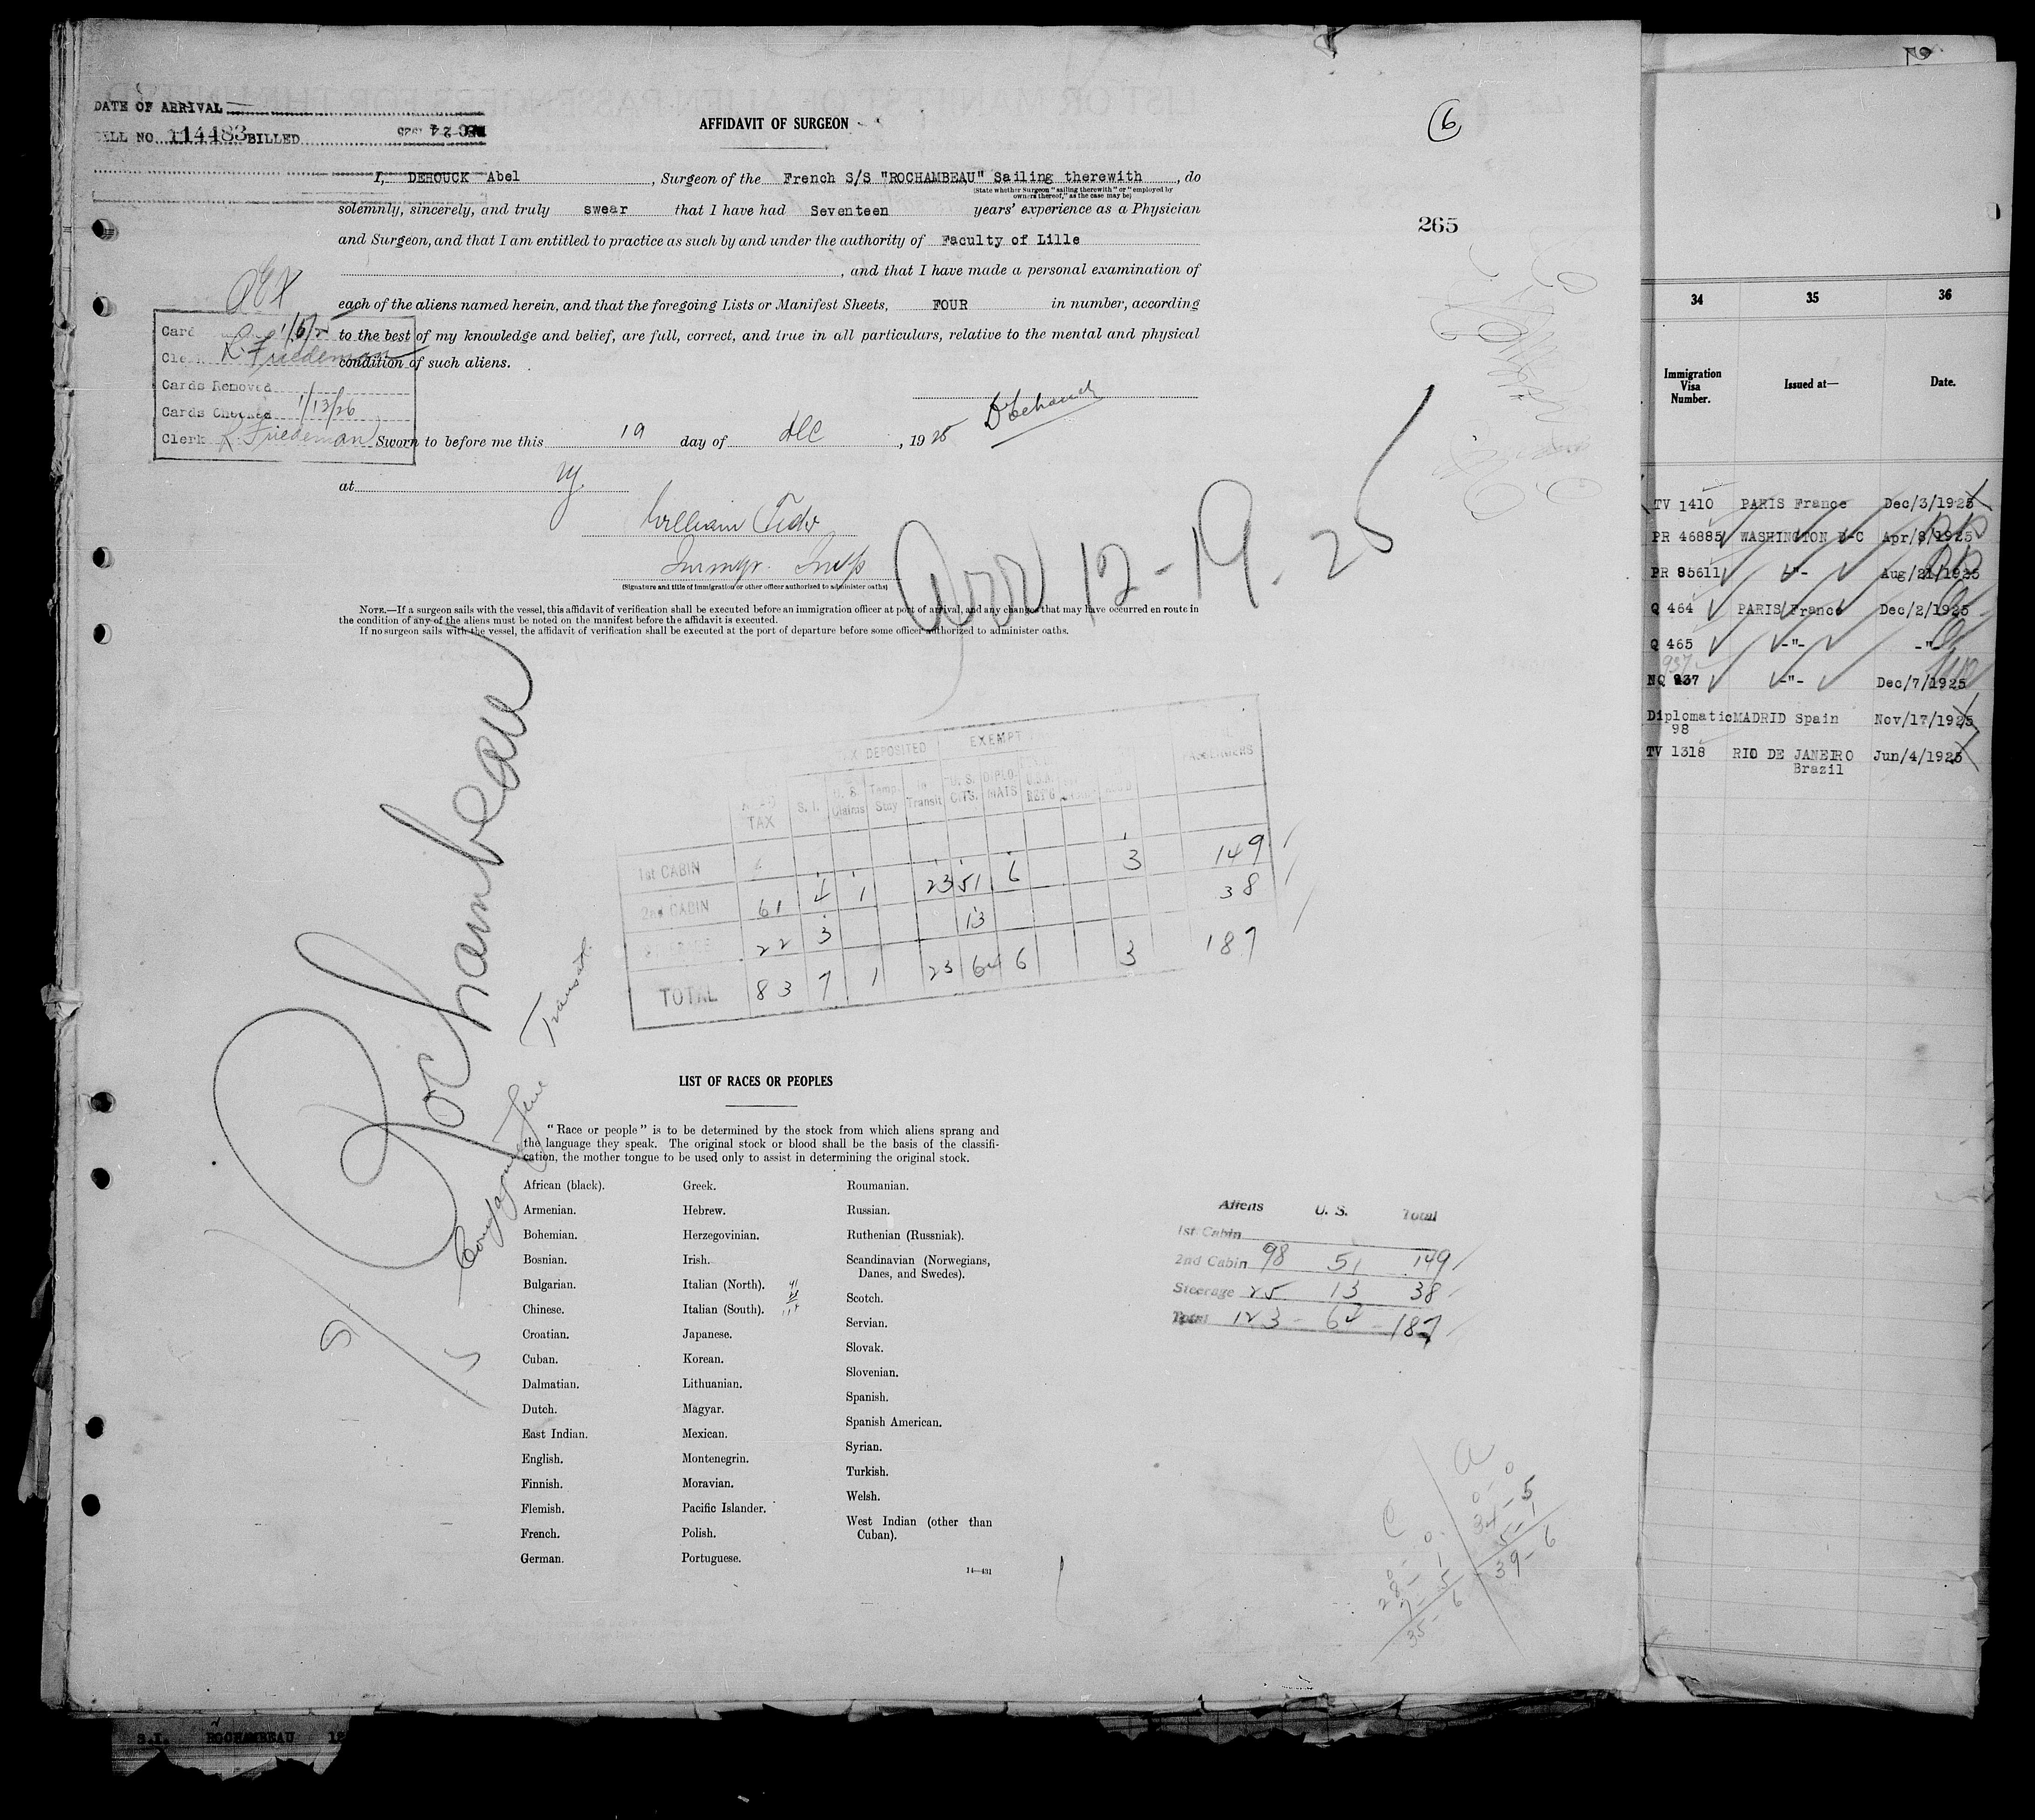 DATE OF ARRIVAL
BILL NO. 114483 BILLED DEC 24 1925
AFFIDAVIT OF SURGEON
6
I, DEHOUCK Abel, Surgeon of the French S/S "ROCHAMBEAU" Sailing therewith, do
(State whether Surgeon "sailing therewith" or "employed by
owners thereof," as the case may be)
solemnly, sincerely, and truly swear that I have had Seventeen years' experience as a Physician
265
and Surgeon, and that I am entitled to practice as such by and under the authority of Faculty of Lille
, and that I have made a personal examination of
each of the aliens named herein, and that the foregoing Lists or Manifest Sheets, FOUR in number, according
to the best of my knowledge and belief, are full, correct, and true in all particulars, relative to the mental and physical
condition of such aliens.
Card 1/6/25
Clerk R Friedeman
Cards Removed
Cards Checked 1/13/26
Clerk R Friedeman
Sworn to before me this 19 day of Dec, 1925
at NY.
William
Immgr. Insp
(Signature and title of immigration or other officer authorized to administer oaths)
Arr 12-19-25
NOTE.—If a surgeon sails with the vessel, this affidavit of verification shall be executed before an immigration officer at port of arrival, and any changes that may have occurred en route in
the condition of any of the aliens must be noted on the manifest before the affidavit is executed.
If no surgeon sails with the vessel, the affidavit of verification shall be executed at the port of departure before some officer authorized to administer oaths.
Rochambeau
Transat.
TAX DEPOSITED EXEMPT PASSENGERS
TAX S. I. U. S. Claims Temp. Stay In Transit U. S. CITS. DIPLOMATS
1st CABIN
2nd CABIN 61 4 1 23 51 6 3 149
STEERAGE 22 3 13 38
TOTAL 83 7 1 23 64 6 3 187
LIST OF RACES OR PEOPLES
"Race or people" is to be determined by the stock from which aliens sprang and
the language they speak. The original stock or blood shall be the basis of the classifi-
cation, the mother tongue to be used only to assist in determining the original stock.
African (black).
Armenian.
Bohemian.
Bosnian.
Bulgarian.
Chinese.
Croatian.
Cuban.
Dalmatian.
Dutch.
East Indian.
English.
Finnish.
Flemish.
French.
German.
Greek.
Hebrew.
Herzegovinian.
Irish.
Italian (North).
Italian (South).
Japanese.
Korean.
Lithuanian.
Magyar.
Mexican.
Montenegrin.
Moravian.
Pacific Islander.
Polish.
Portuguese.
Roumanian.
Russian.
Ruthenian (Russniak).
Scandinavian (Norwegians,
Danes, and Swedes).
Scotch.
Servian.
Slovak.
Slovenian.
Spanish.
Spanish American.
Syrian.
Turkish.
Welsh.
West Indian (other than
Cuban).
14—431
Aliens U. S. Total
1st Cabin
2nd Cabin 98 51 149
Steerage 25 13 38
Total 123 - 64 - 187
C
0 - 0
28 - 1
7 - 5
35 - 6
A
0 - 0
34 - 5
5 - 1
39 - 6
34 35 36
Immigration
Visa
Number.
Issued at—
Date.
TV 1410 PARIS France Dec/3/1925
PR 46885 WASHINGTON D-C Apr/8/1925
PR 85611 -"- Aug/21/1925
Q 464 PARIS France Dec/2/1925
Q 465 -"- -"-
937
NQ 937 -"- Dec/7/1925
Diplomatic MADRID Spain Nov/17/1925
98
TV 1318 RIO DE JANEIRO Jun/4/1925
Brazil
S.I. ROCHAMBEAU